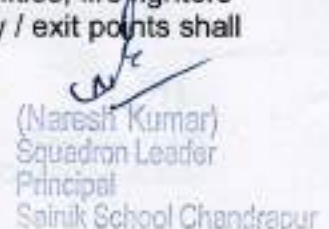 / exit points shall
(Naresh Kumar)
Squadron Leader
Principal
Sainik School Chandrapur